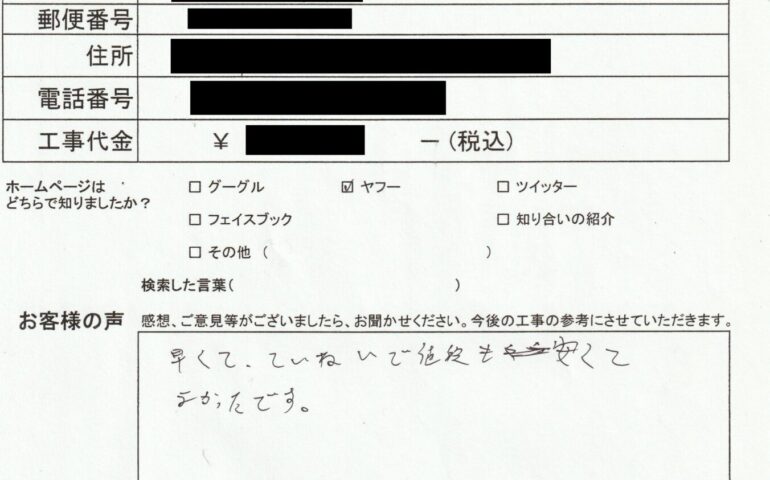 郵便番号
住所
電話番号
工事代金 ¥ ー(税込)
ホームページは
どちらで知りましたか？
□ グーグル ☑ ヤフー □ ツイッター
□ フェイスブック □ 知り合いの紹介
□ その他 ( )
検索した言葉( )
お客様の声 感想、ご意見等がございましたら、お聞かせください。今後の工事の参考にさせていただきます。
早くて、ていねいで値段も安くて
よかったです。